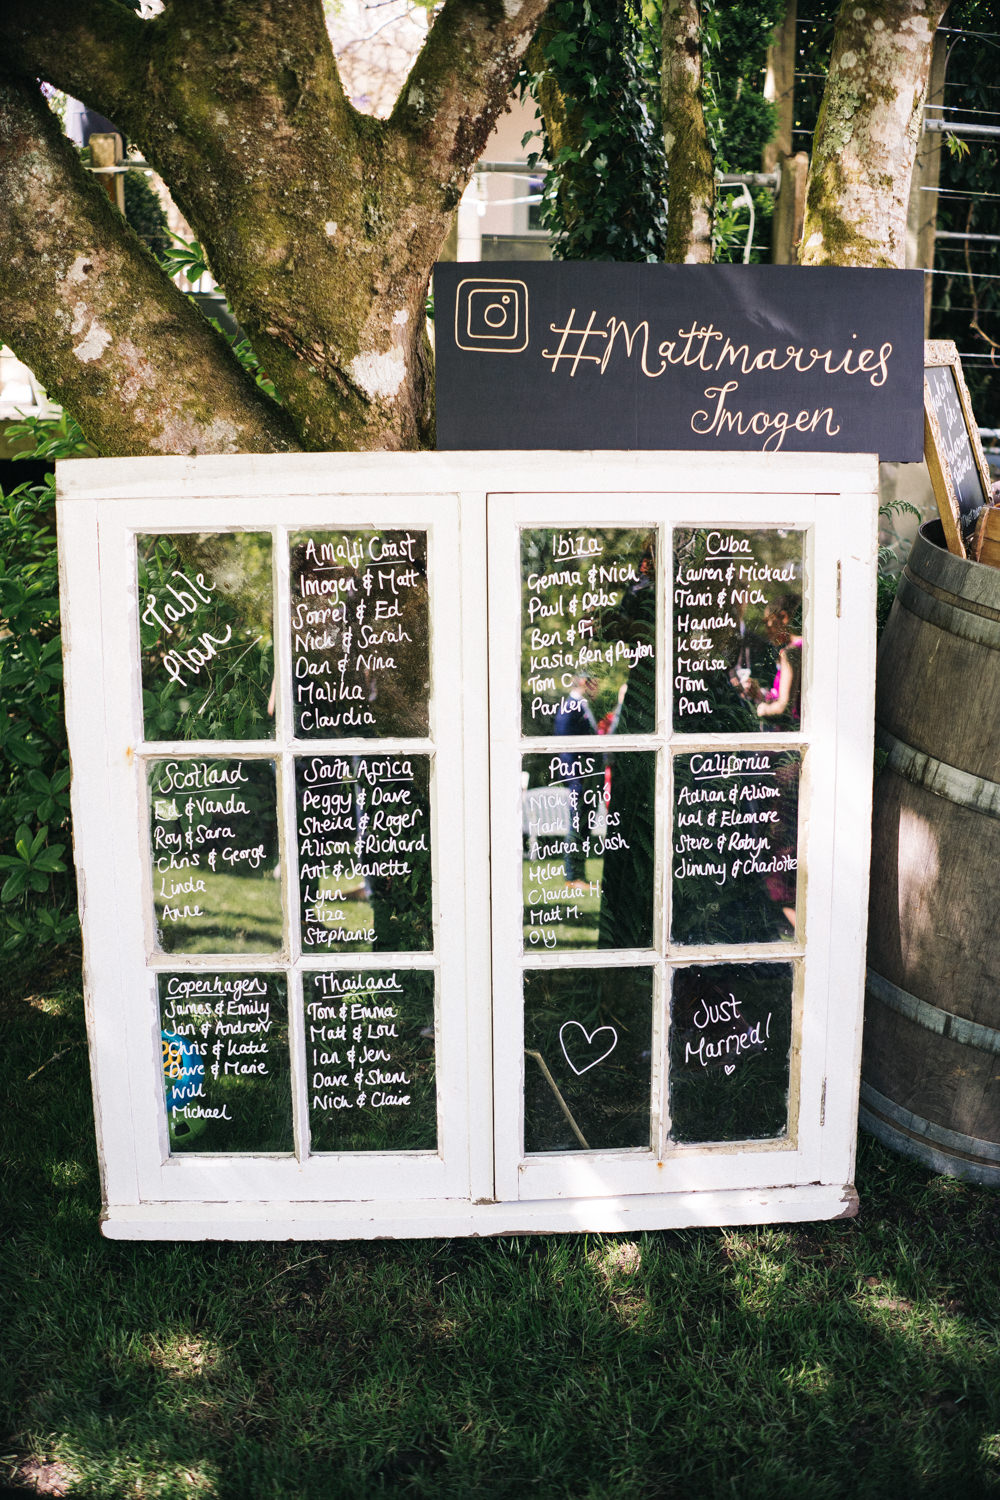 #Mattmarries
Imogen
Table
Plan
Amalfi Coast
Imogen & Matt
Sorrel & Ed
Nick & Sarah
Dan & Nina
Malika
Claudia
Ibiza
Gemma & Nich
Paul & Debs
Ben & Fi
Kasia, Ben & Payton
Tom C
Parker
Cuba
Lauren & Mickael
Tami & Nich
Hannah
Kate
Marisa
Tom
Pam
Scotland
Ed & Vanda
Roy & Sara
Chris & George
Linda
Anne
South Africa
Peggy & Dave
Sheila & Roger
Alison & Richard
Art & Jeanette
Lynn
Eliza
Stephanie
Paris
Nich & Gio
Mark & Becs
Andrea & Josh
Helen
Claudia H.
Matt M.
Oly
California
Adnan & Alison
Kal & Eleonore
Steve & Robyn
Jimmy & Charlotte
Copenhagen
James & Emily
Jan & Andrew
Chris & Katie
Dave & Marie
Will
Michael
Thailand
Tom & Emma
Matt & Lou
Ian & Jen
Dave & Sheni
Nich & Claire
Just
Married!